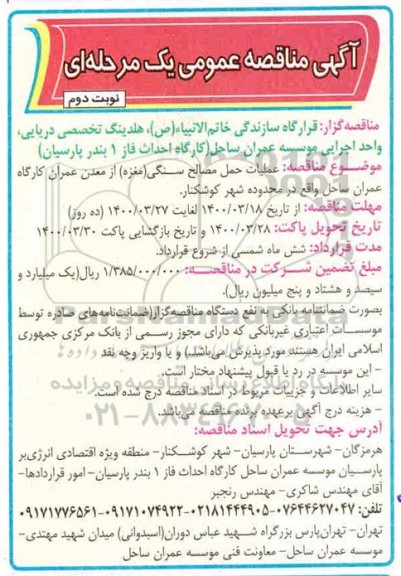 آگهی مناقصه عمومی یک مرحله‌ای
نوبت دوم
مناقصه‌گزار: قرارگاه سازندگی خاتم‌الانبیاء(ص)، هلدینگ تخصصی دریایی،
واحد اجرایی موسسه عمران ساحل(کارگاه احداث فاز ۱ بندر پارسیان)
موضوع مناقصه: عملیات حمل مصالح سنگی(مغزه) از معدن عمران کارگاه
عمران ساحل واقع در محدوده شهر کوشکنار.
مهلت مناقصه: از تاریخ ۱۴۰۰/۰۳/۱۸ لغایت ۱۴۰۰/۰۳/۲۷ (ده روز)
تاریخ تحویل پاکت: ۱۴۰۰/۰۳/۲۸ و تاریخ بازگشایی پاکت ۱۴۰۰/۰۳/۳۰
مدت قرارداد: شش ماه شمسی از شروع قرارداد.
مبلغ تضمین شرکت در مناقصه: ۱/۳۸۵/۰۰۰/۰۰۰ ریال(یک میلیارد و
سیصد و هشتاد و پنج میلیون ریال).
بصورت ضمانتنامه بانکی به نفع دستگاه مناقصه‌گزار(ضمانت‌نامه‌های صادره توسط
موسسات اعتباری غیربانکی که دارای مجوز رسمی از بانک مرکزی جمهوری
اسلامی ایران هستند مورد پذیرش می‌باشد.) و یا واریز وجه نقد
- این موسسه در رد یا قبول پیشنهاد مختار است.
سایر اطلاعات و جزییات مربوط در اسناد مناقصه درج شده است.
- هزینه درج آگهی برعهده برنده مناقصه می‌باشد.
آدرس جهت تحویل اسناد مناقصه:
هرمزگان- شهرستان پارسیان- شهر کوشکنار- منطقه ویژه اقتصادی انرژی‌بر
پارسیان موسسه عمران ساحل کارگاه احداث فاز ۱ بندر پارسیان- امور قراردادها-
آقای مهندس شاکری- مهندس رنجبر
تلفن: ۰۷۶۴۴۶۲۷۰۴۷-۰۲۱۸۱۴۴۴۹۰۵-۰۹۱۷۱۰۷۴۹۲۲-۰۹۱۷۱۷۷۶۵۶۱
تهران- تهران‌پارس بزرگراه شهید عباس دوران(اسبدوانی) میدان شهید مهتدی-
موسسه عمران ساحل- معاونت فنی موسسه عمران ساحل
پایگاه اطلاع رسانی مناقصه و مزایده
۰۲۱-۸۸۳۴۹۶۷۰-۵